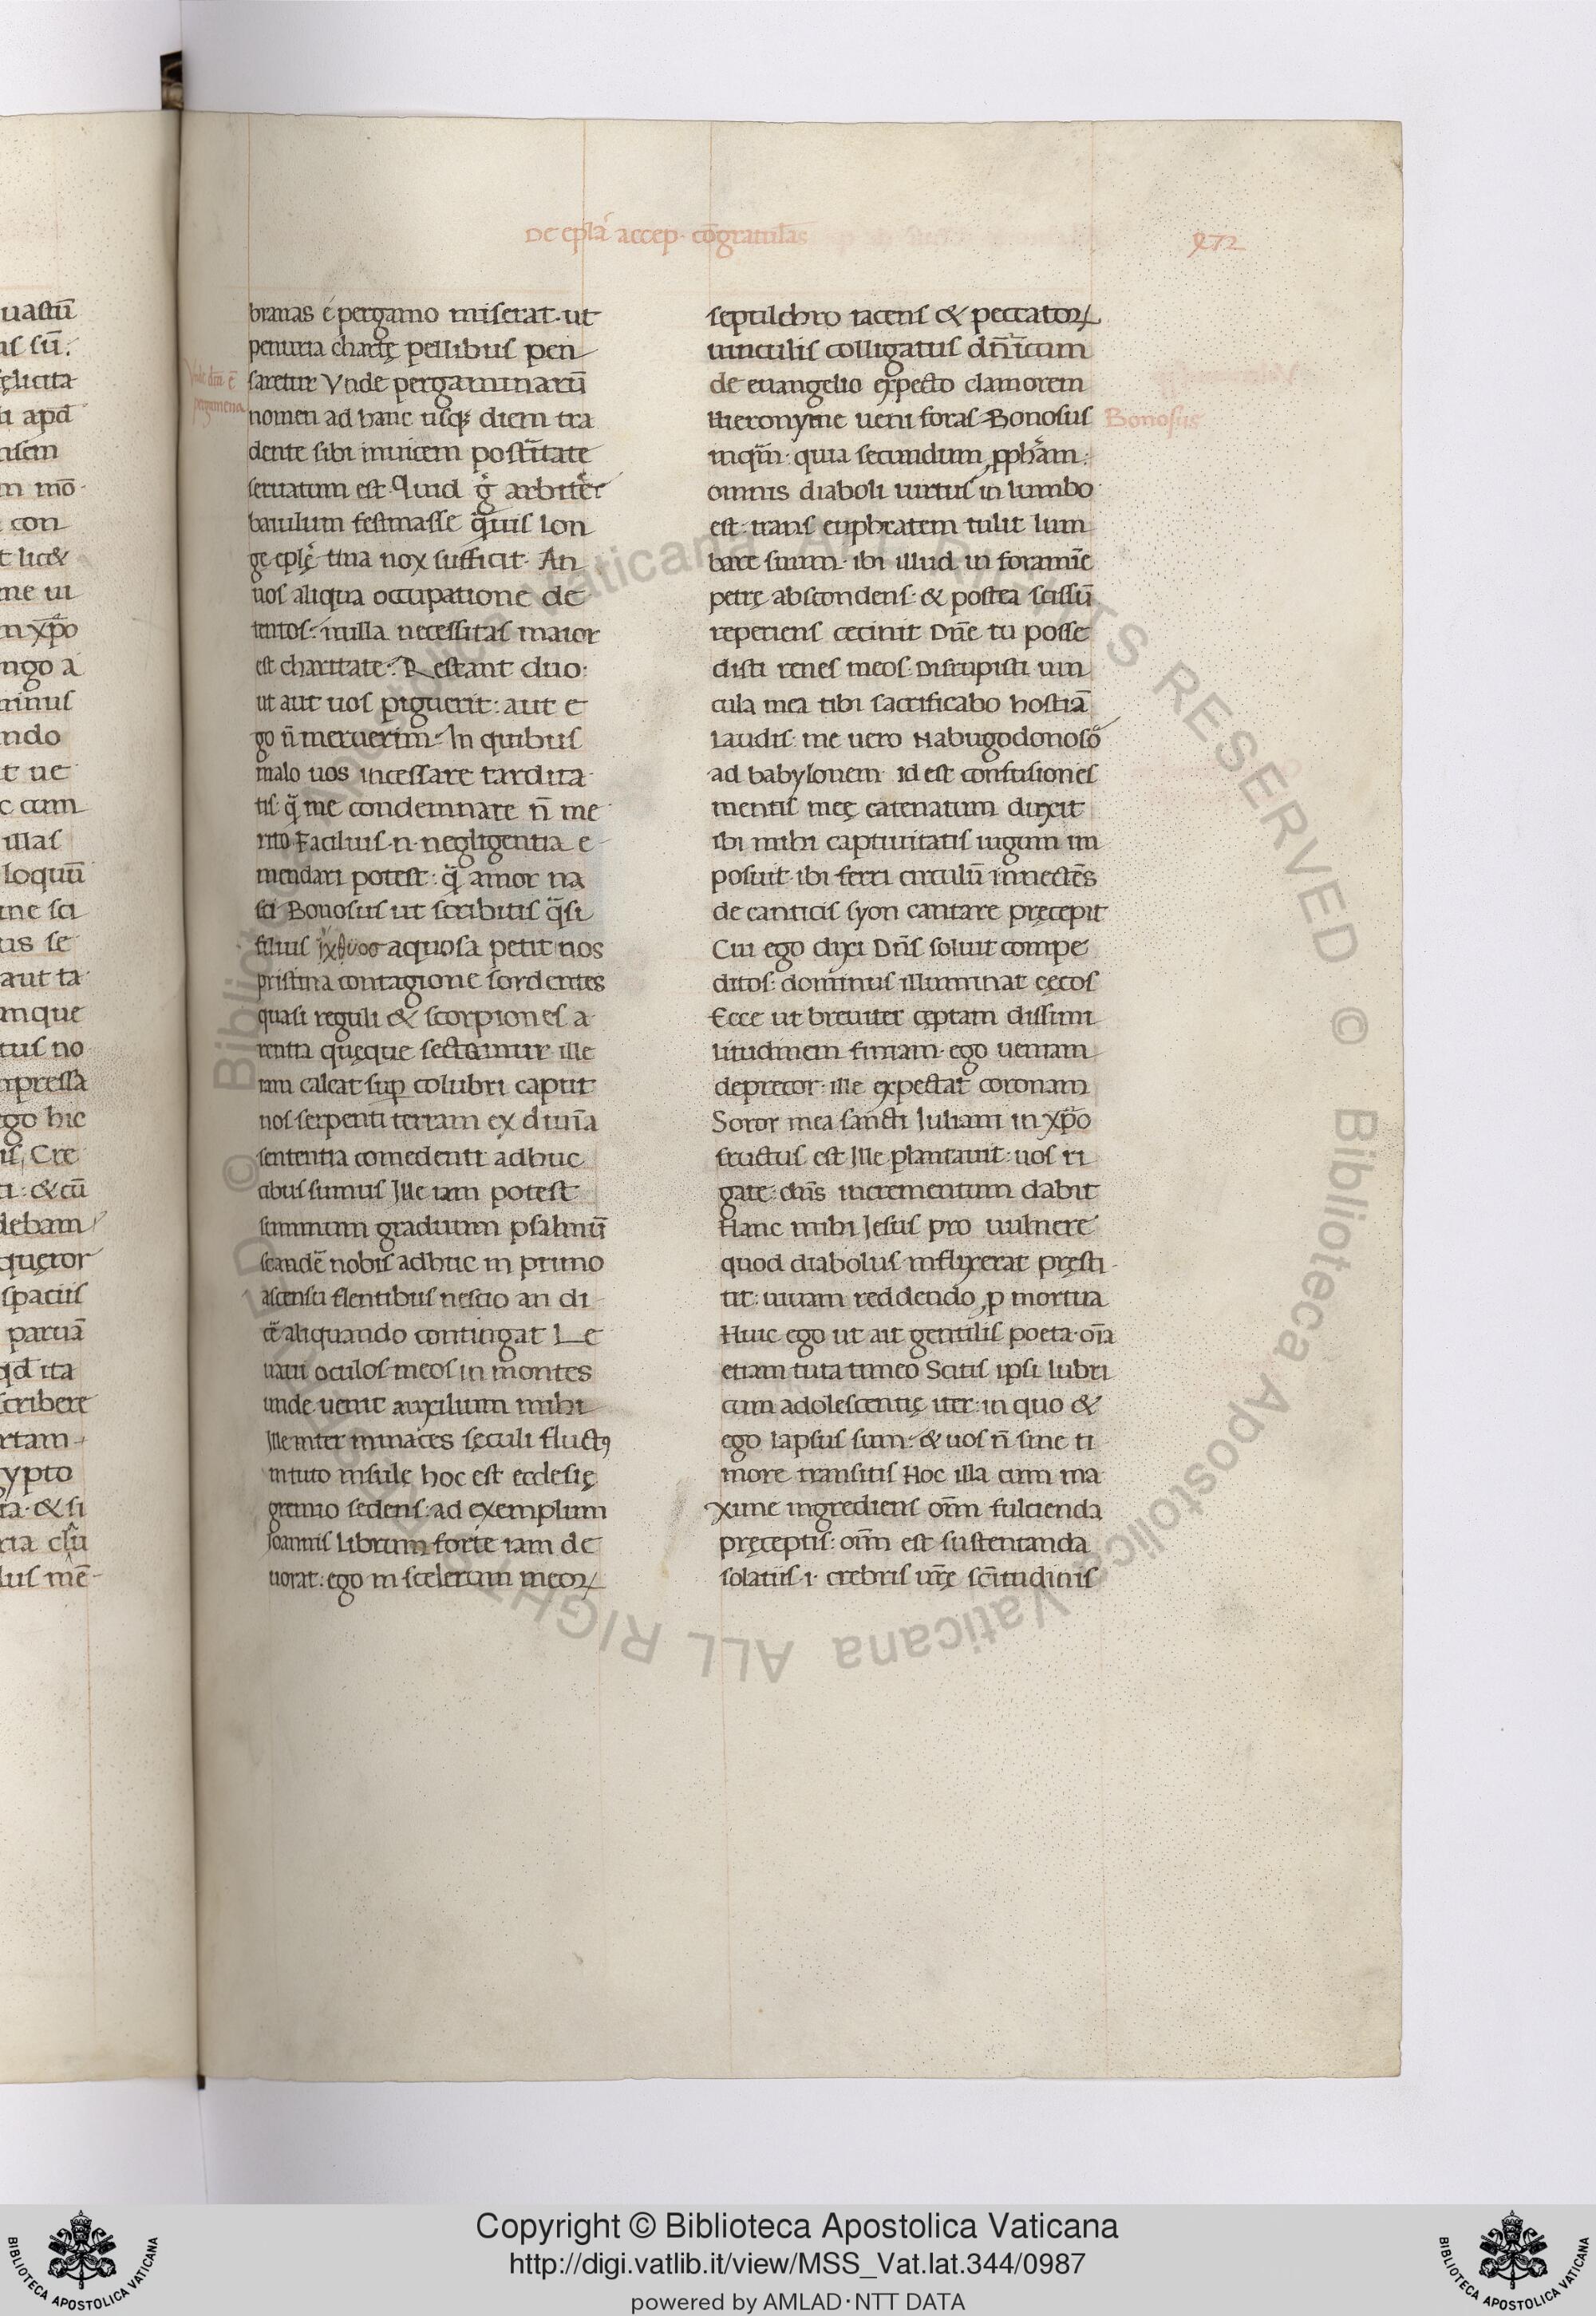 De epl̄a accep. cōgratulās
272
uastū
as sū.
ęlicita
apd̄
nsem
m mō
con
t lic&
me ui
m xp̄o
ngo a
minus
ndo
t ue
c cum
illas
loquū
ine sci
us se
aut ta
mque
tus no
mpressa
ego hic
Cre
& cū
debam
quęror
spaciis
paruā
qd̄ ita
scribere
rtam
ypto
ia. & si
ria
lus mē
Vnde dc̄m ē
pergamena
branas é pergamo miserat. ut
penuria chartę pellibus pen
saretur Vnde pergaminarū
nomen ad hanc usq; diem tra
dente sibi inuicem post̄itate
seruatum est. Quid g̊ arbiter
baiulum festinasse q̄uis lon
ge eplę́ una nox sufficit. An
uos aliqua occupatione de
tentos: nulla necessitas maior
est charitate. Restant duo:
ut aut uos piguerit: aut e
go n̄ meruerim. In quibus
malo uos incessare tardita
tis: q̄ me condemnare n̄ me
rito Facilius .n. negligentia e
mendari potest: q̄ amor na
sci Bonosus ut scribitis q̄si
filius ἰχθύοσ aquosa petit nos
pristina contagione sordentes
quasi reguli & scorpiones a
rentia quęque sectamur ille
iam calcat sup̱ colubri caput
nos serpenti terram ex diuīa
sententia comedenti adhuc
cibus sumus Ille iam potest
summum graduum psalmū
scandē nobis adhuc in primo
ascensu flentibus nescio an di
cē aliquando contingat Le
uaui oculos meos in montes
unde ueniet auxilium mihi
Ille inter minaces sęculi fluctꝰ
in tuto insulę hoc est ecclesię
gremio sedens: ad exemplum
Ioannis librum forte iam de
uorat: ego in scelerum meoꝝ
sepulchro iacens & peccatoꝝ
uinculis colligatus dn̄icum
de euangelio expecto clamorem
Hieronyme ueni foras Bonosus
Bonosus
inq̄m. quia secundum ꝓph̄am:
omnis diaboli uirtus in lumbo
est: trans euphratem tulit lum
bare suum. ibi illud in foramīe
petrę abscondens: & postea scissū
reperiens cecinit Dn̄e tu posse
disti renes meos: Disrupisti uin
cula mea tibi sacrificabo hostiā
laudis: me uero Nabugodonosōr
ad babylonem id est confusiones
mentis meę catenatum duxit
ibi mihi captiuitatis iugum im
posuit ibi ferri circulū innectēs
de canticis syon cantare pręcepit
Cui ego dixi Dn̄s soluit compe
ditos: dominus illuminat cęcos
Ecce ut breuiter cęptam dissimi
litudinem finiam. ego ueniam
deprecor: ille expectat coronam
Soror mea sancti Iuliani in xp̄o
fructus est Ille plantauit: uos ri
gate: dn̄s incrementum dabit
Hanc mihi Iesus pro uulnere
quod diabolus inflixerat pręsti
tit: uiuam reddendo ꝓ mortua
Huic ego ut ait gentilis poeta. oīa
etiam tuta timeo Scitis ipsi lubri
cum adolescentię iter: in quo &
ego lapsus sum: & uos n̄ sine ti
more transitis Hoc illa cum ma
xime ingrediens oīm fulcienda
pręceptis: oīm est sustentanda
solatiis .i. crebris ur̄ę sc̄itudinis
© Biblioteca Apostolica Vaticana ALL RIGHTS RESERVED © Biblioteca Apostolica Vaticana ALL RIGHTS RESERVED
Copyright © Biblioteca Apostolica Vaticana
http://digi.vatlib.it/view/MSS_Vat.lat.344/0987
powered by AMLAD·NTT DATA
BIBLIOTECA APOSTOLICA VATICANA
BIBLIOTECA APOSTOLICA VATICANA